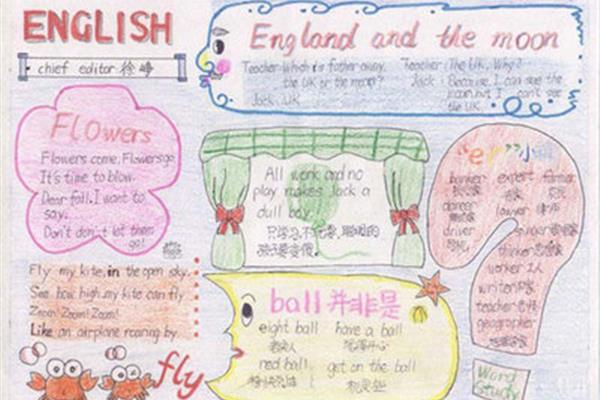 ENGLISH
chief editor 徐峥
England and the moon
Teacher: Which is father away,
the UK or the moon?
Jack: UK
Teacher: The UK, Why?
Jack: Because I can see the
moon but I can't see
the UK.
Flowers
Flowers come, Flowers go,
It's time to blow.
Dear fall, I want to
say:
Don't don't let them
go!
All work and no
play makes Jack a
dull boy!
只学习不玩耍,聪明的
孩子要变傻。
"er"小词
banker
expert
farmer
dancer
lawyer 律师
singer
driver
thinker 思想家
worker 工人
writer 作家
teacher 老师
geographer
Fly my kite, in the open sky.
See how high, my kite can fly
Zoom! Zoom! Zoom!
Like an airplane roaring by.
fly
ball 并非是
eight ball have a ball
red ball get on the ball
Word
Study